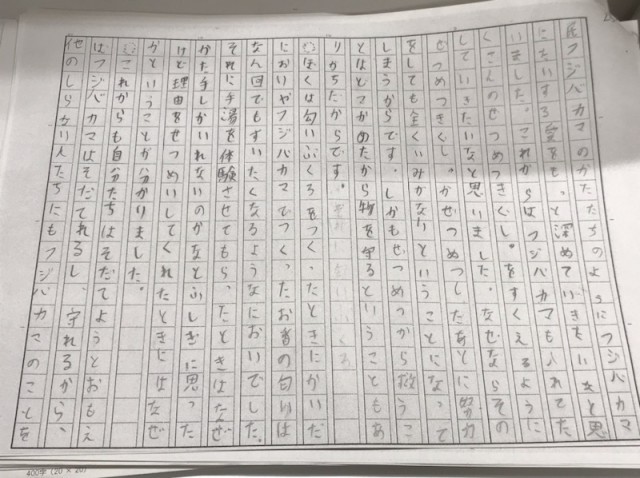 民フジバカマのかたたちのようにフジバカマ
にたいする会をもっと深めていきたいなと思
いました。これからはフジバカマも入れてた
くさんのぜつめつきぐしゅをすくえるように
していきたいなと思いました。なぜならその
ぜつめつきぐしゅがぜつめつしたあとに努力
をしても全くいみがないということになって
しまうからです。しかもぜつめつから救うこ
とはとてもかめたから物を守るということもあ
りがちだからです。
ぼくは匂いぶくろをつくったときにかいだ
においやフジバカマでつくったお香の匂いは
なん回でもすいたくなるようなにおいでした。
それに手湯を体験させてもらったときはなぜ
かた手しかいれないのかなとふしぎに思った
けど理由をせつめいしてくれたときにはなぜ
かということが分かりました。
これからも自分たちはそだてようとおもえ
ばフジバカマはそだてれるし、守れるから、
他のしらない人たちにもフジバカマのことを
400字(20×20)